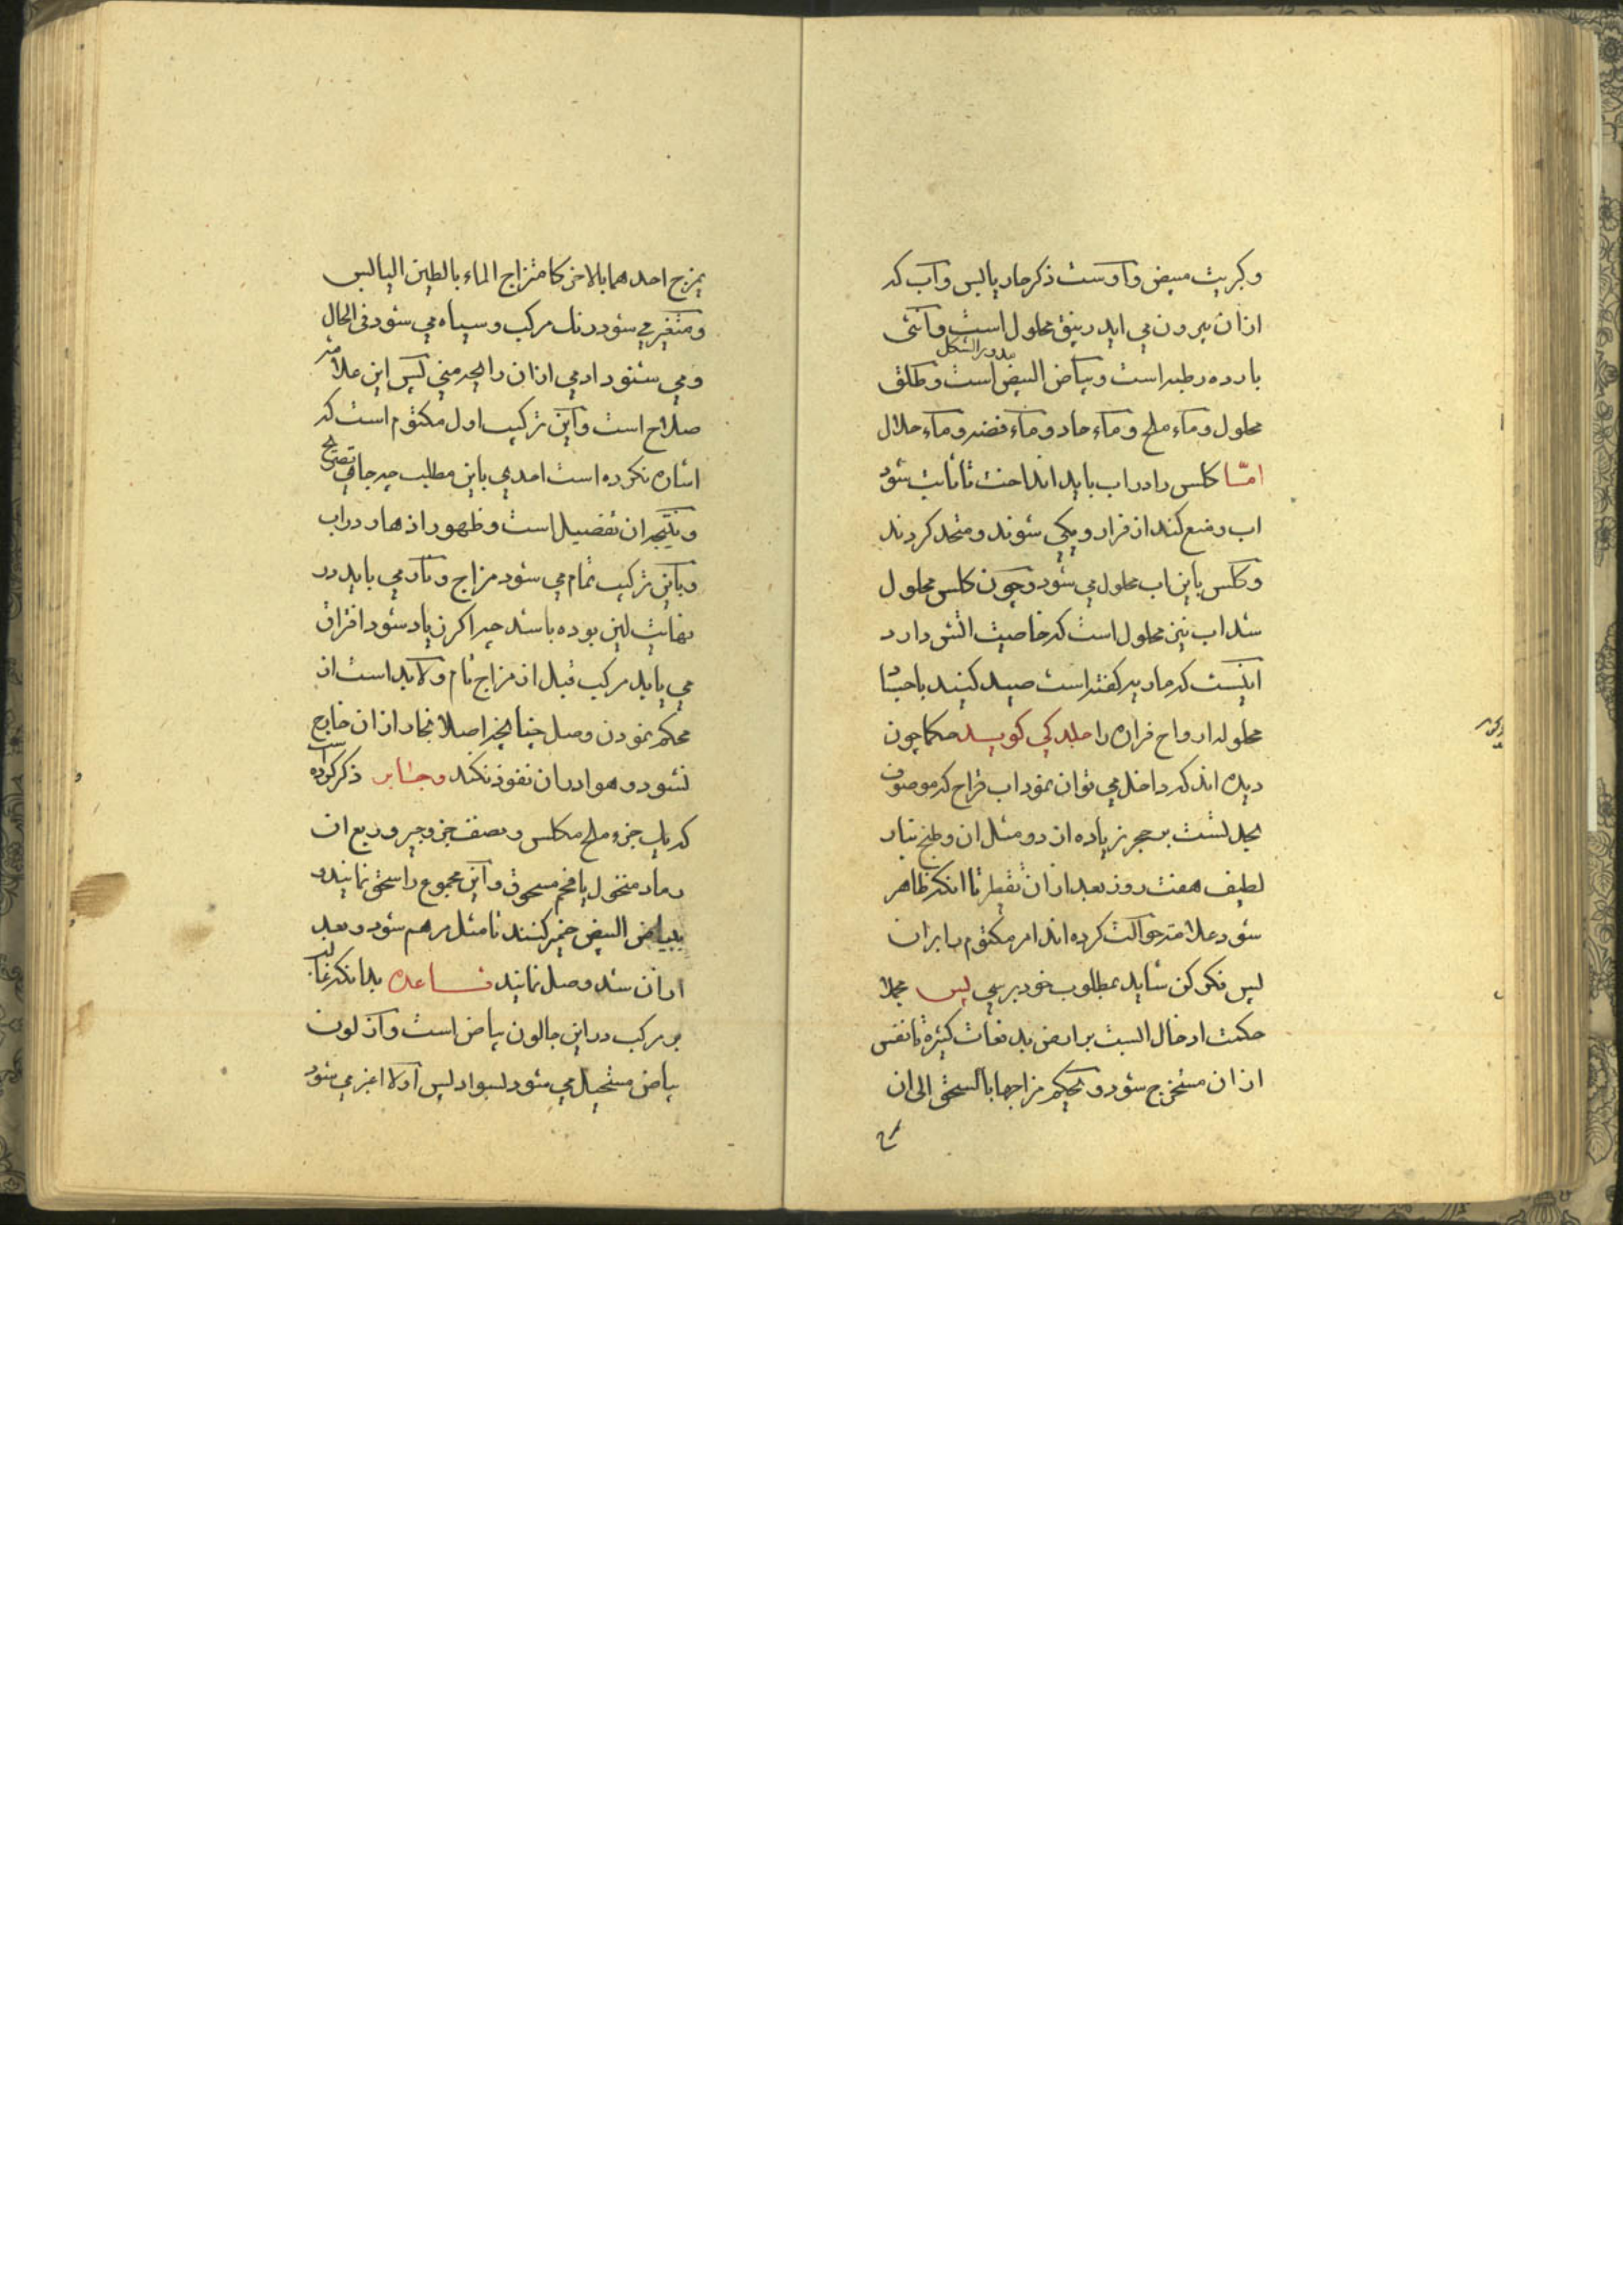 و کبریت مبیض و اوست ذکر حار یابس و آب که
ازان بیرون می اید زیبق محلول است و انثی
مدور الشکل
بارده رطبه است و بیاض البیض است و طلق
محلول و ماء ملح و ماء حاد و ماء فضه و ماء حلال
امّا کلس را در اب باید انداخت تا ثابت شود
اب و منع کند از فرار و یکی شوند و متحد کردند
و کلس باین اب محلول می شود و چون کلس محلول
شد اب نیز محلول است که خاصیت اتش دارد
اینست که ماریه کفته است صید کنید باجساد
محلوله ارواح فراره را جلدکی کوید حکما چون
دیده اند که داخل می توان نمود اب قراح که موصوف
لشت بر حجر زیاده از دو مثل ان و طبخ بنار
لطیف هفت روز بعد ازان تقطیر تا انکه ظاهر
شود علامته حوالت کرده اند امر مکتوم بابران
پس فکر کن شاید بمطلوب خود برسی پس مجملا
حکمت ادخال السبت بر ارض بدفعات کثیره تا نفس
ازان مستخرج شود و یحکم مزاجها بالسحق الی ان
یمزج احدهما بالاخر کامتزاج الماء بالطین الیابس
و متغیر می شود رنك مرکب و سیاه می شود فی الحال
و می شنود ادمی ازان رایحه منی پس این علامته
صلاح است و این ترکیب اول مکتوم است که
اشاره نکرده است احدی باین مطلب چه جای تصریح
و نتیجه ان تفصیل است و ظهور ازهار در اب
و باین ترکیب تمام می شود مزاج و نار می باید در
نهایت لین بوده باشد چرا کر زیاد شود افراق
می یابد مرکب قبل از مزاج تام و لابد است از
محکم نمودن وصل چنانچه اصلا بخار ازان خارج
نشود و هوا دران نفوذ نکند و جابر ذکر کرده است
که یك جزء ملح مکلس و نصف جزو جیر و ربع ان
رماد منخول یا فحم مسحوق و این مجموع را سحق نمایند و
ببیاض البیض خمیر کنند تا مثل مرهم شود و بعد
ازان شد وصل نمایند قاعده بدانکه غالب
بر مرکب در این جا لون بیاض است و از لون
بیاض مستحیل می شود بسواد پس اولا اغبر می شود